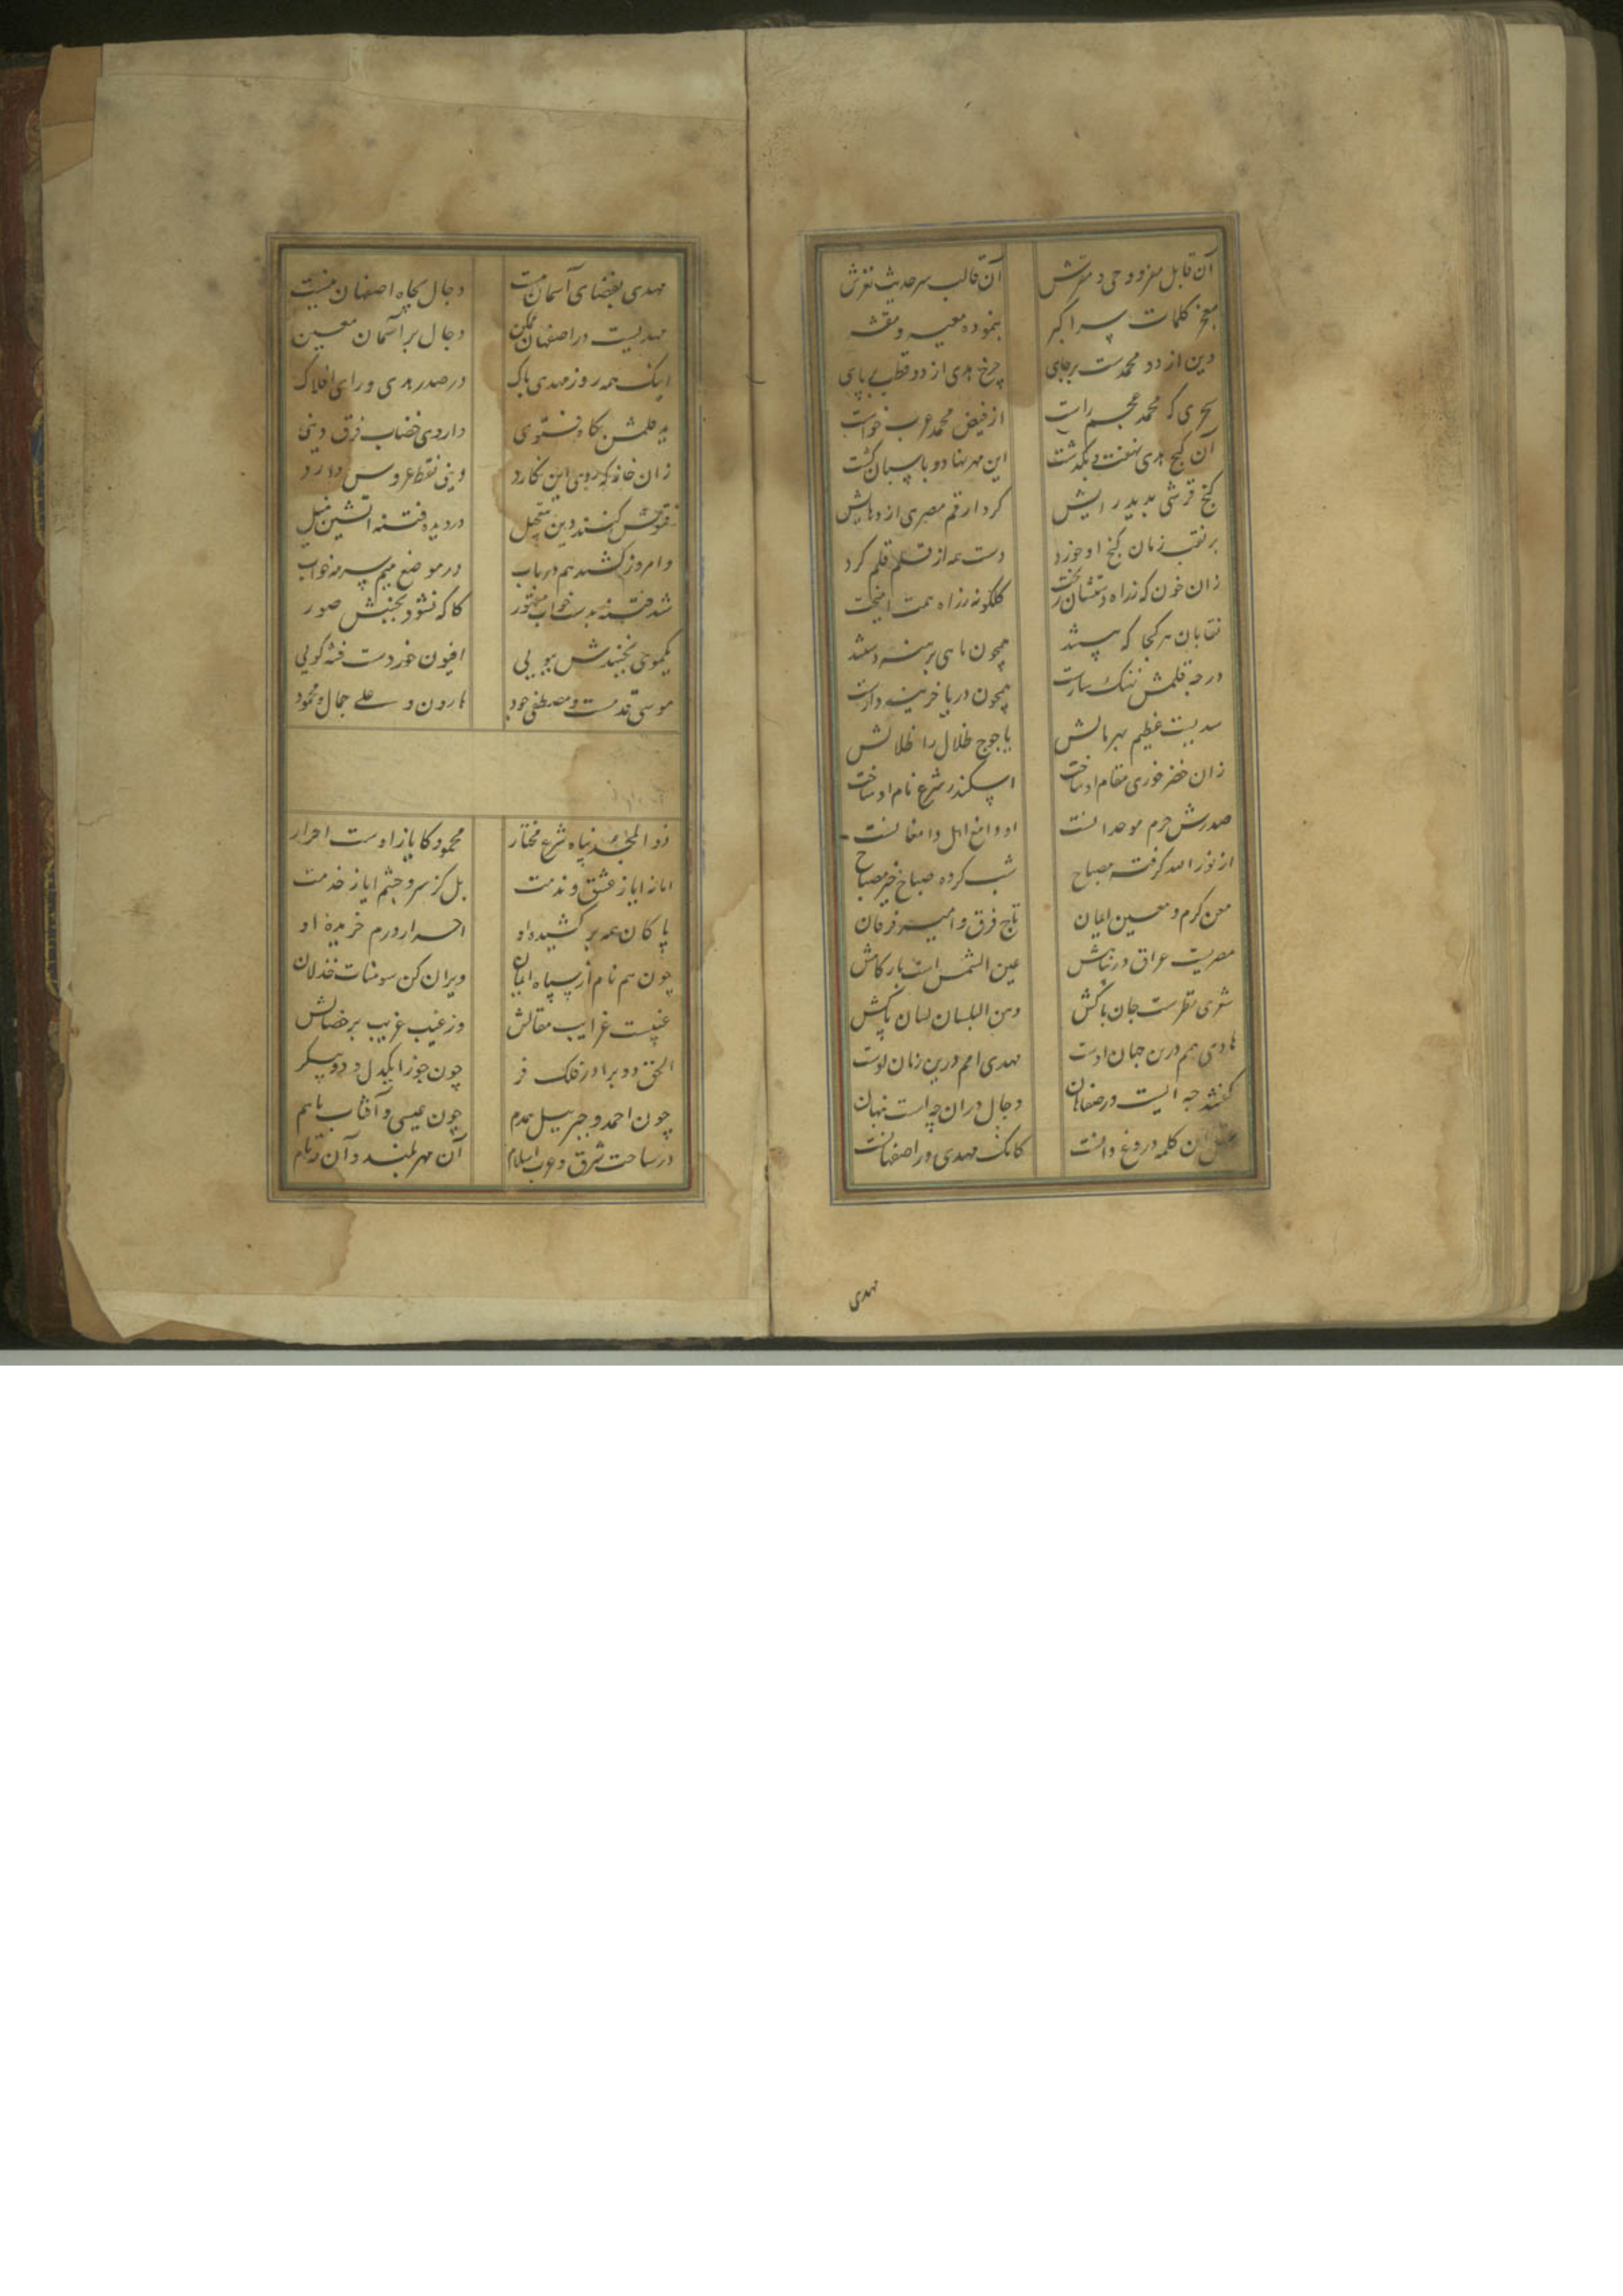 آن قابل مغز وحی و مغزش آن قالب سر حدیث نغزش
معجز کلمات سر اکبر بنموده معیه و مقشر
دین از دو محمدست برجای چرخ هدی از دو قطب برپای
بحری که محمد عجم راست از فیض محمد عرب خواست
آن گنج هدی نهفت و بگذشت این مهر نهاد و پاسبان گشت
گنج قرشی بدید رایش کرد ار قم مصری اژدهایش
بر نقب زمان گنج او خورد دست همه از قلم قلم کرد
زان خون که ز راه دستشان ریخت گلگونه رزاه همت انگیخت
نقابان هر کجا که هستند همچون ماهی برهنه دستند
در چه قلمش نهنگ سارست همچون دریا خزینه دارست
سدیست عظیم بهر مالش یاجوج ظلال را ظلالش
زان خضر خوری مقام او ساخت اسکندر شرع نام او ساخت
صدرش حرم موحدانست او دامغ اهل دامغانست
از نور الله گرفت مصباح شب کرده صباح خیر مصباح
معن کرم و معین ایمان تاج فرق و امیر فرمان
مصریست عراق در پناهش عین الشمس است بارگاهش
شعری نظرست جان پاکش دهن البلسان لسان پاکش
هادی هم درین جهان اوست مهدی امم درین زمان اوست
گفتند چه ایست در صفاهان دجال در آن چه است پنهان
این کلمه دروغ دانست کانک مهدی در اصفهانست
مهدی
مهدی بفضای آسمان نیست دجال بچاه اصفهان نیست
مهدیست در اصفهان ممکن دجال بر آسمان معین
اینک همه روز مهدی پاک در صدر هدی ورای افلاک
به قلمش بگاه فتوی داروی خضاب فرق دینی
زان خامه که روی این نگارد دینی نقط عروس دارد
فتوش کنند دین بتعجیل در دیده فتنه آتشین میل
و امروز کشید هم درین باب در موضع میم سرمه خواب
شد فتنه بدست خواب مقهور کاگه نشود بجنبش صور
یکموی نجنبدش بپویی افیون خوردست فتنه گویی
موسی قدمست و مصطفی جود هارون و علی جمال و محمود
ذو المجد پناه شرع مختار محمود کایاز اوست احرار
اما نه ایاز عشق و ندمت بل کز سر و چشم ایاز خدمت
پاکان همه برکشیده او احرار ورم خریده او
چون هم نام از سپاه ایمان ویران کن سومنات خذلان
غیبیست غرایب مقالش وز غیب غریب بر خصالش
الحق دو برادر فلک فر چون جوزا یکدل و دو پیکر
چون احمد و جبرییل همدم چون عیسی و آفتاب با هم
در ساحت شرق و غرب اسلام آن مهر بلند و آن